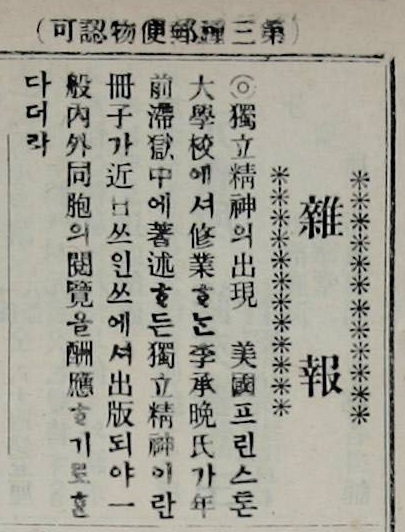 （第三種郵便物認可）
雜報
◎獨立精神의出現 美國프린스톤
大學校에셔修業ᄒᆞᄂᆞᆫ李承晩氏가年
前滯獄中에著述ᄒᆞ든獨立精神이란
冊子가近日쓰인쓰에셔出版되야一
般內外同胞의閱覽을酬應ᄒᆞ기로ᄒᆞᆫ
다더라